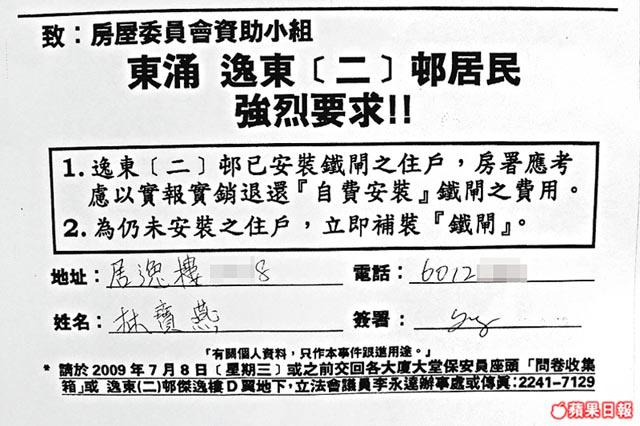 致：房屋委員會資助小組
東涌 逸東〔二〕邨居民
強烈要求!!
1. 逸東〔二〕邨已安裝鐵閘之住戶，房署應考
慮以實報實銷退還『自費安裝』鐵閘之費用。
2. 為仍未安裝之住戶，立即補裝『鐵閘』。
地址：居逸樓 8 電話：6012
姓名：林寶燕 簽署：
「有關個人資料，只作本事件跟進用途。」
* 請於 2009 年 7 月 8 日〔星期三〕或之前交回各大廈大堂保安員座頭「問卷收集
箱」或 逸東(二)邨傑逸樓 D 翼地下，立法會議員李永達辦事處或傳真：2241-7129
蘋果日報